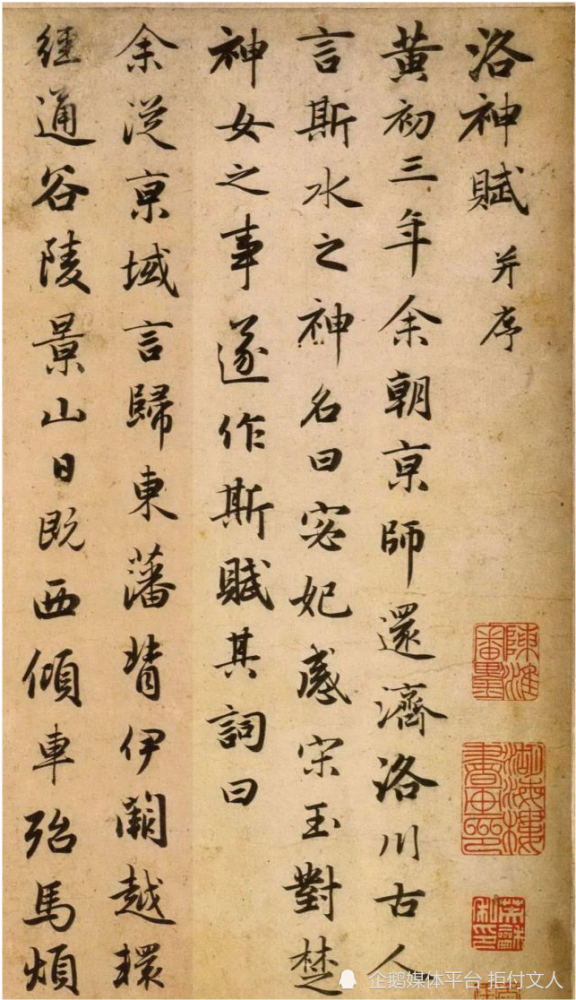 洛神賦 并序
黃初三年余朝京師還濟洛川古人
言斯水之神名曰宓妃感宋玉對楚
神女之事遂作斯賦其詞曰
余從京域言歸東藩背伊闕越轘
經通谷陵景山日既西傾車殆馬煩
企鹅媒体平台 拒付文人